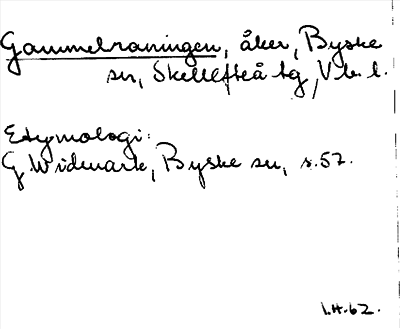 Gammelraningen, åker, Byske
sn, Skellefteå tg, Vb. l.
Etymologi:
G Widmark, Byske sn, s.57.
1.H.62.